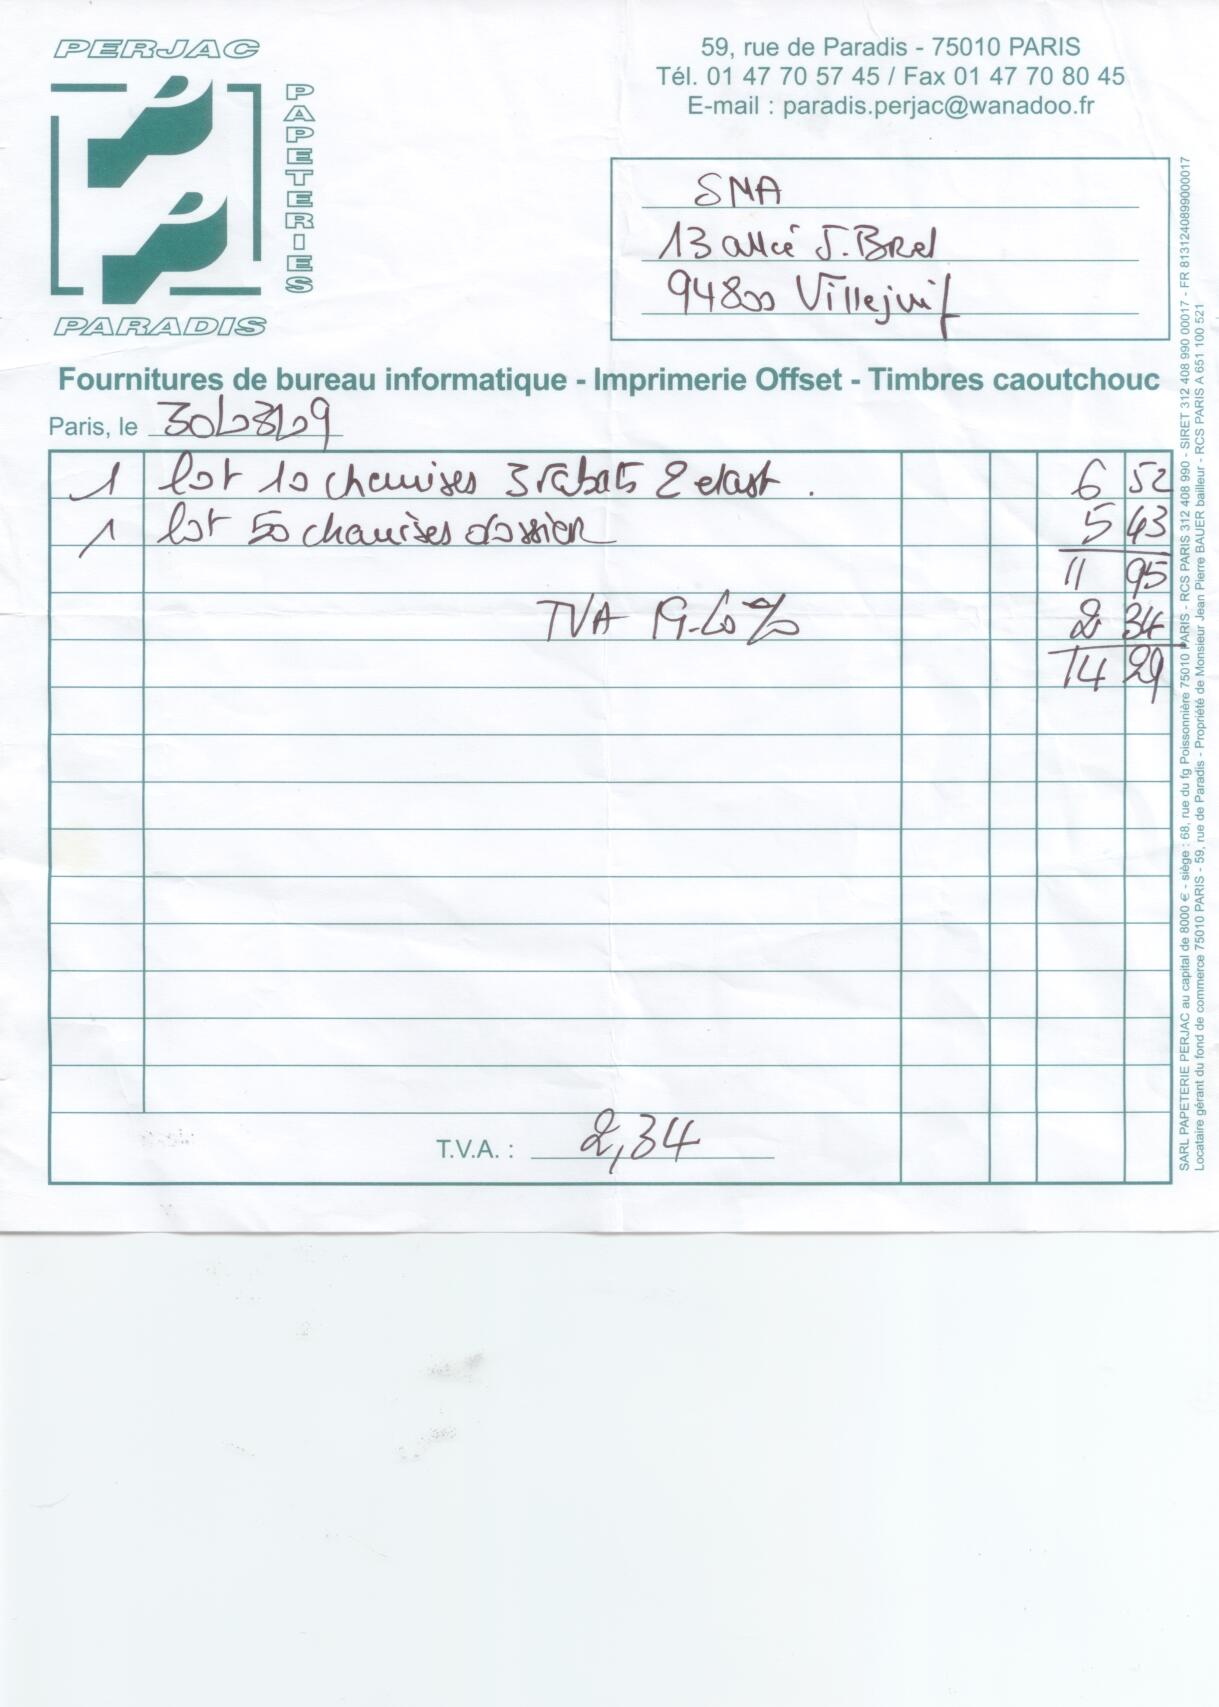 PERJAC
PAPETERIES
PARADIS
59, rue de Paradis - 75010 PARIS
Tél. 01 47 70 57 45 / Fax 01 47 70 80 45
E-mail : paradis.perjac@wanadoo.fr
SMA
13 allée J. Brel
94800 Villejuif
Fournitures de bureau informatique - Imprimerie Offset - Timbres caoutchouc
Paris, le
1 lot 10 chemises 3 rabats 2 elast. 6 52
1 lot 50 chemises dossier 5 43
11 95
TVA 19.60% 2 34
14 29
T.V.A. : 2,34
SARL PAPETERIE PERJAC au capital de 8000 € - siège : 68, rue du fg Poissonnière 75010 PARIS - RCS PARIS 312 408 990 - SIRET 312 408 990 00017 - FR 81312408990000017
Locataire gérant du fond de commerce 75010 PARIS - 59, rue de Paradis - Propriété de Monsieur Jean Pierre BAUER bailleur - RCS PARIS A 651 100 521